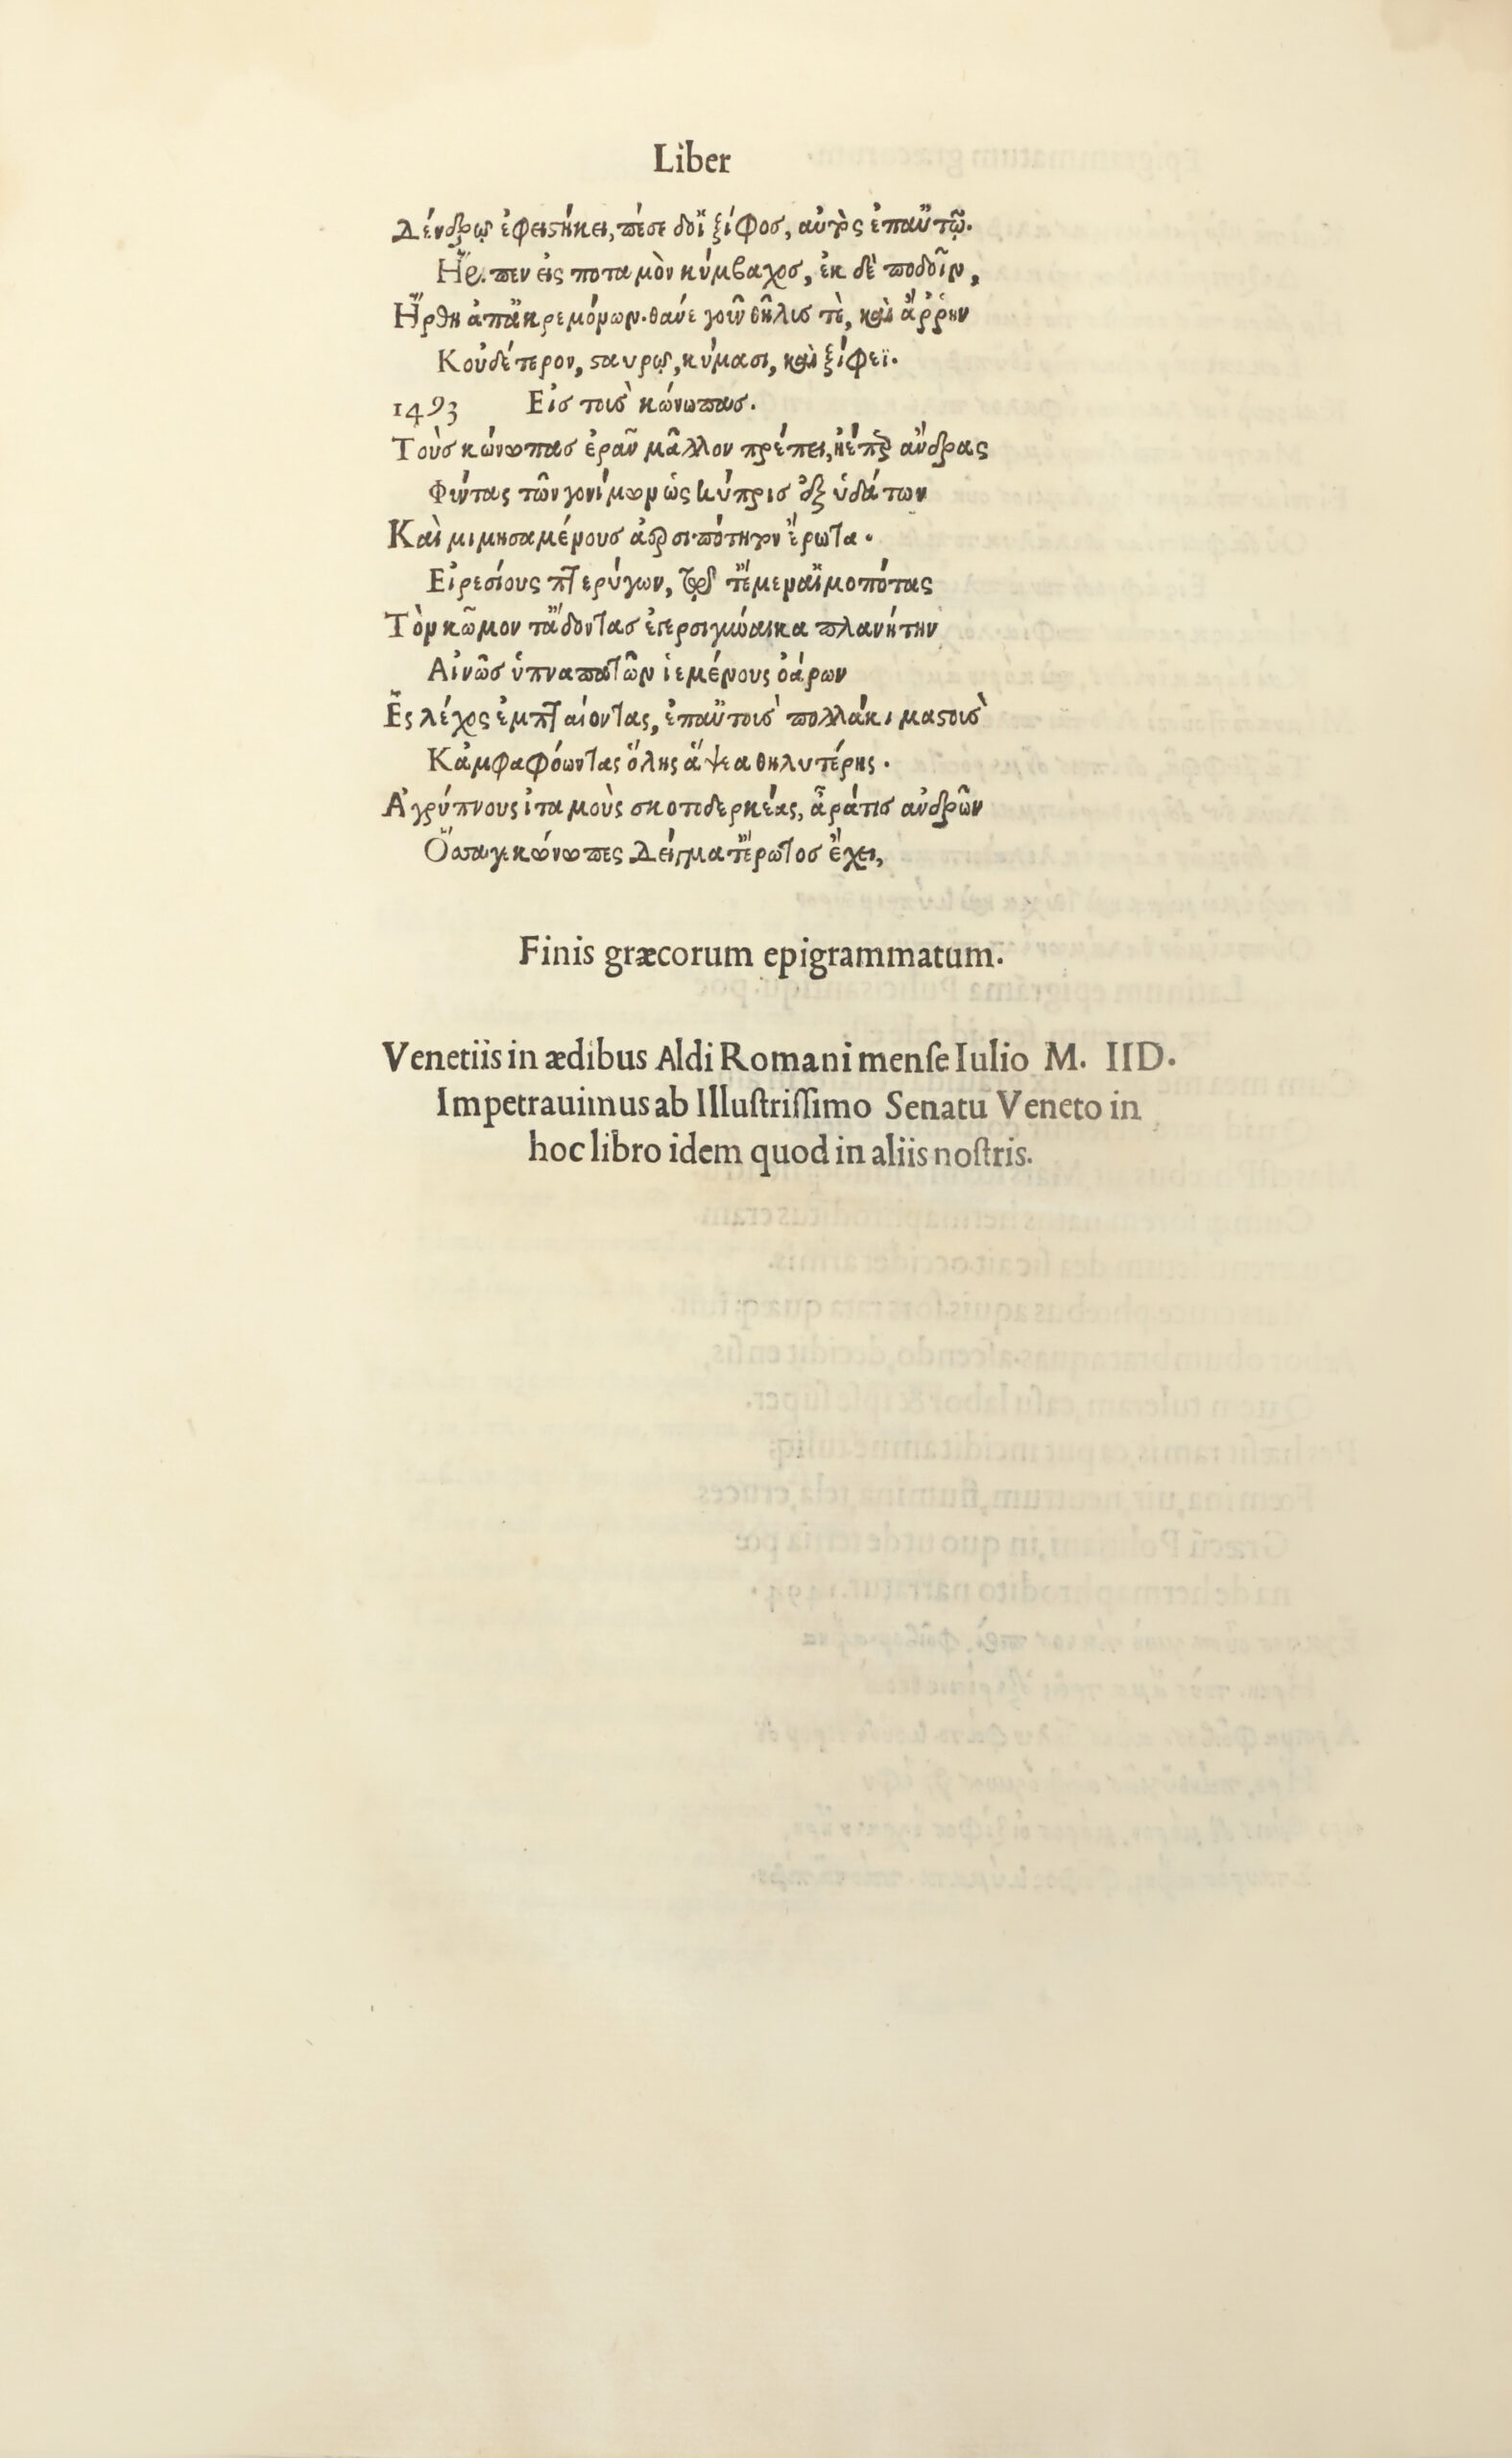 Liber
Δένδρῳ ἐφειστήκει, πέσε δοἳ ξίφοσ, αὐτὸς ἐπαὒτῷ.
Ἤριπεν εἰς ποταμὸν κύμβαχοσ, ἐκ δὲ ποδοῖν,
Ἤρθη ἀπἂκρεμόνων. θάνε γοῦν θῆλισ τὲ, καὶ ἄῤῥην
Κοὐδέτερον, σταυρῳ, κύμασι, καὶ ξίφεϊ.
1493 Εἰσ τοὺσ κώνωπασ.
Τοὺσ κώνωπασ ἐρᾶν μᾶλλον πρέπει, ἠέπερ ἄνδρας
Φύντας τῶν γονίμων ὡς Κύπρισ ἐξ ὑδάτων
Καὶ μιμησαμένους ἀερσιπότητον ἔρωτα.
Εἰρεσίους πτερύγων, τἤμεν αἵμοπότας
Τὸν κῶμον τἄδοντασ ἐγερσιγύναικα πλανήτην
Αἰνῶσ ὑπναπατῶν ἱεμένους ὀάρων
Ἐς λέχος ἐμπταίοντας, ἐπαὒτοισ πολλάκι μαστοῖσ
Κἀμφαφόωντας ὅλης ἅψεα θηλυτέρης.
Ἀγρύπνους ἰταμοὺς σκοτοδερκέας, ἆράτισ ἀνδρῶν
Ὅσαγε κώνωπες Δείγματἔρωτοσ ἔχει,
Finis græcorum epigrammatum.
Venetiis in ædibus Aldi Romani menſe Iulio M. IID.
Impetrauimus ab Illuſtriſſimo Senatu Veneto in
hoc libro idem quod in aliis noſtris.